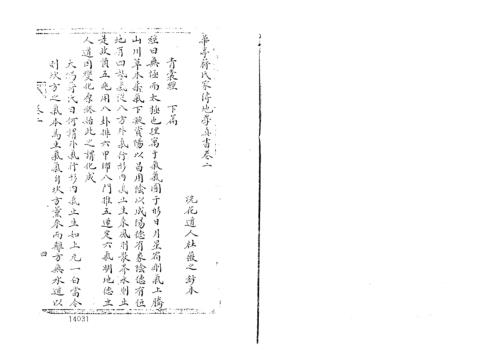 華亭蔣氏家傳地學真書卷二
浣花道人杜薇之鈔本
青囊經 下篇
經曰無極而太極也理寓于氣氣囿于形日月星宿剛氣上騰
山川草木柔氣下凝資陽以昌用陰以成陽德有象陰德有位
地有四勢氣從八方外氣行形內氣止生乘風則散界水則止
是故順五兆用八卦排六甲佈八門推五運定六氣明地德立
人道因變化原終始此之謂化成
大鴻蔣氏曰何謂外氣行形內氣止生如上元一白當令
則坎方之氣本為生氣氣自坎方薰來而離方無水道以
卷二
四
14031